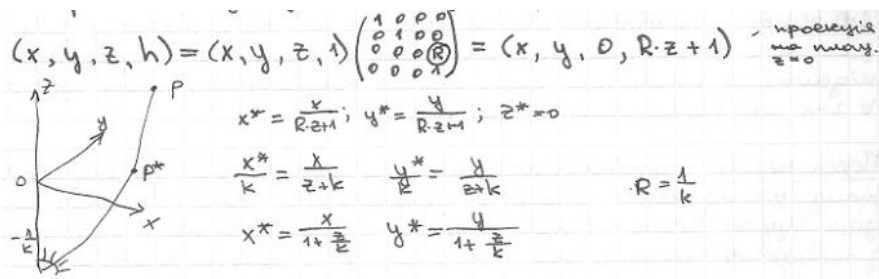 (x, y, z, h) = (x, y, z, 1) (1 0 0 0 / 0 1 0 0 / 0 0 0 R / 0 0 0 1) = (x, y, 0, R·z+1) - проекція на площ. z=0
z P
y x* = x/(R·z+1); y* = y/(R·z+1); z* = 0
O P* x*/k = x/(z+k) y*/k = y/(z+k) R = 1/k
x
-1/k x* = x/(1+z/k) y* = y/(1+z/k)